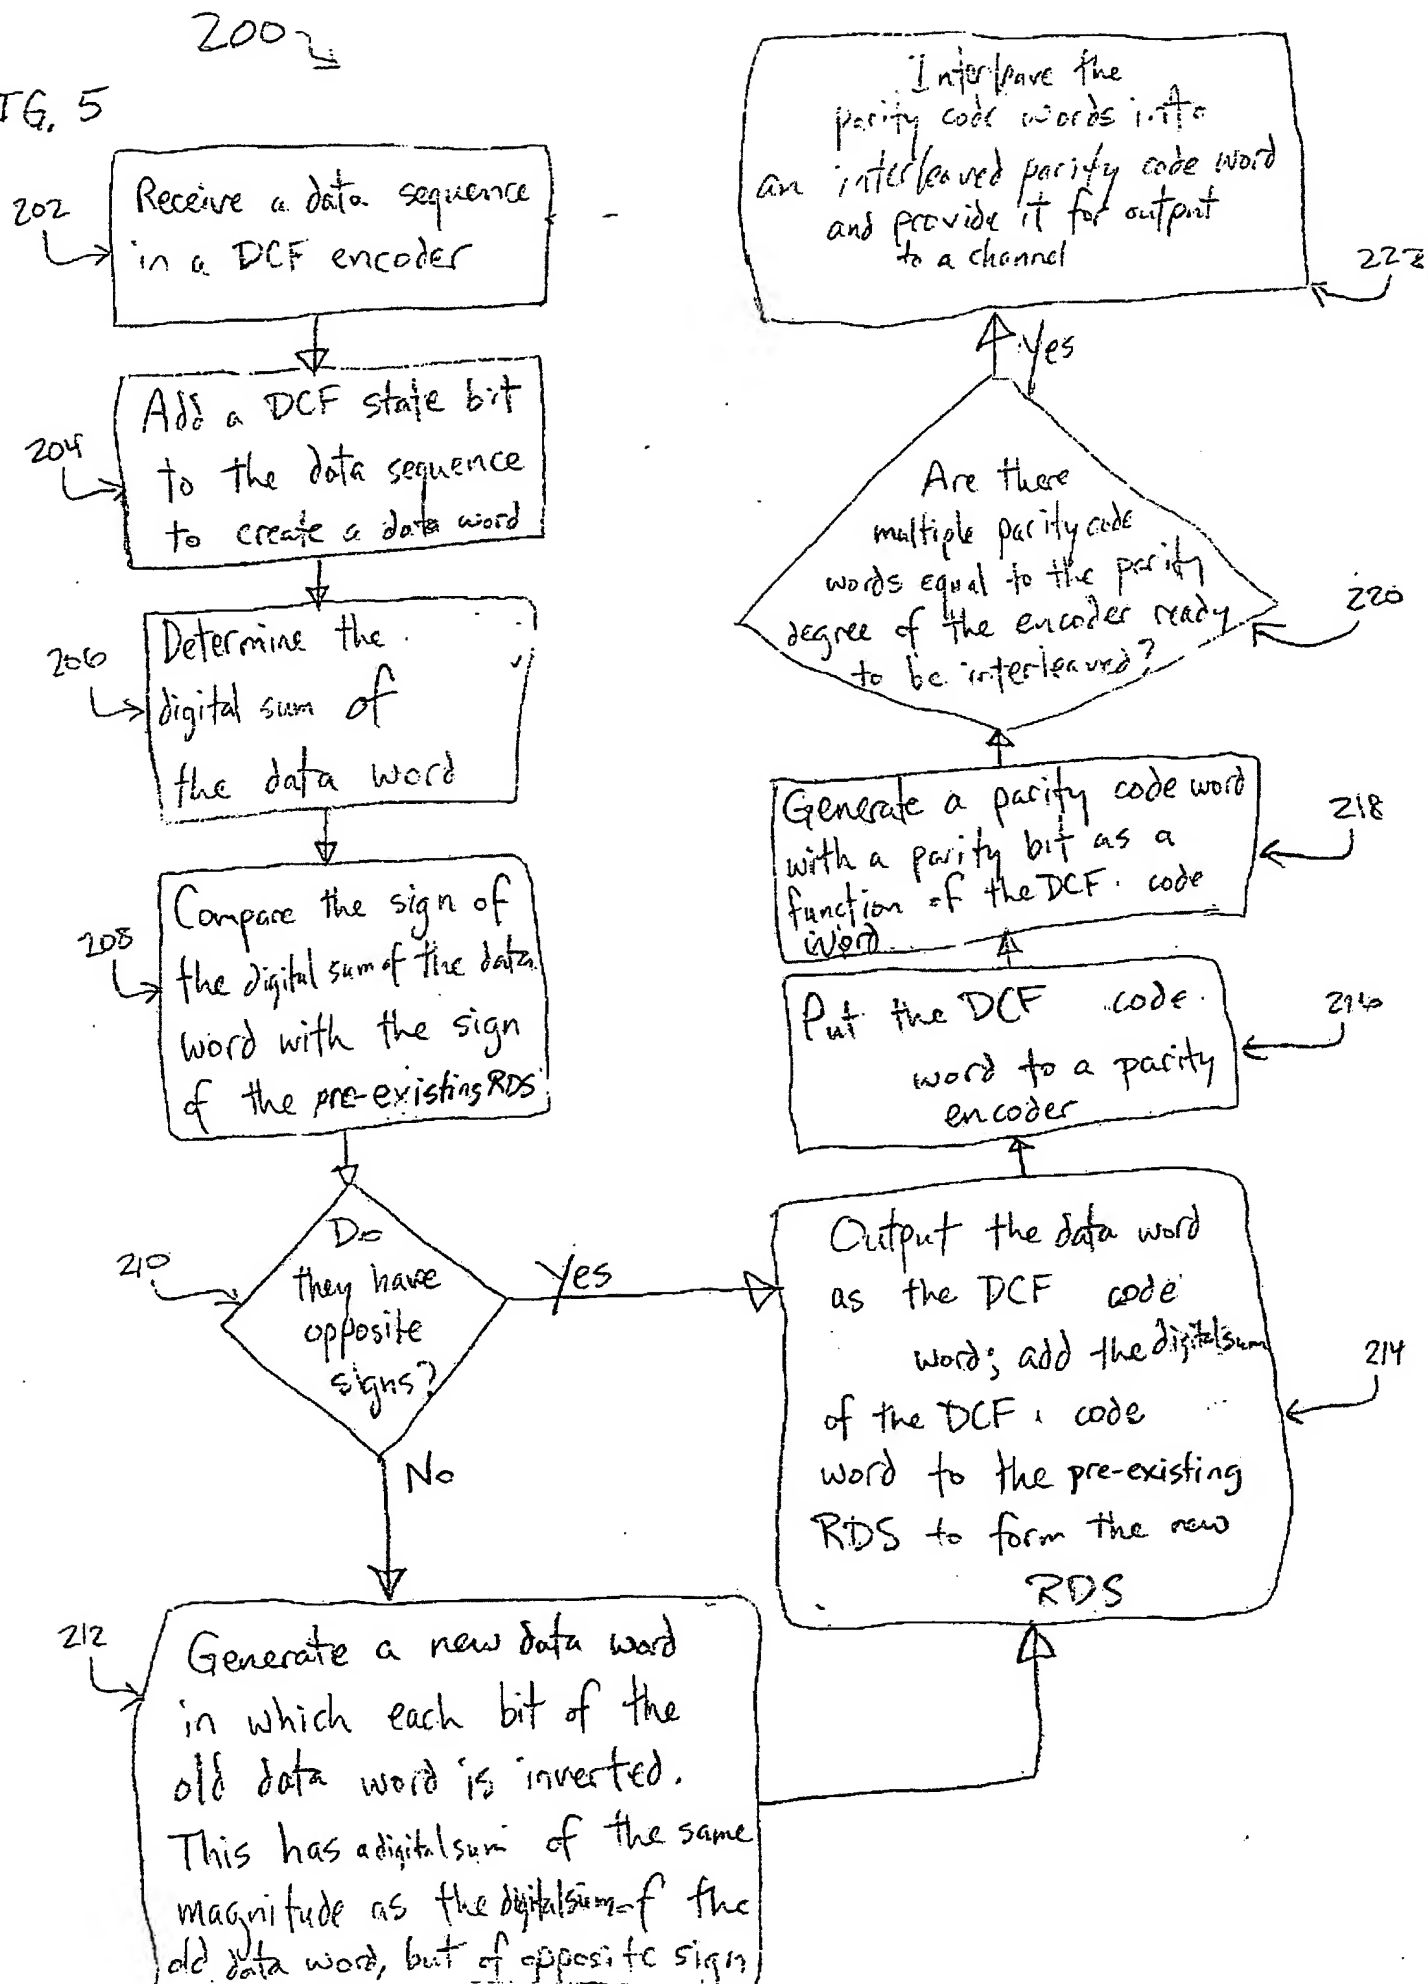 200
FIG. 5
202
Receive a data sequence
in a DCF encoder
204
Add a DCF state bit
to the data sequence
to create a data word
206
Determine the
digital sum of
the data word
208
Compare the sign of
the digital sum of the data
word with the sign
of the pre-existing RDS
210
Do
they have
opposite
signs?
Yes
No
212
Generate a new data word
in which each bit of the
old data word is inverted.
This has a digital sum of the same
magnitude as the digital sum of the
old data word, but of opposite sign
Output the data word
as the DCF code
word; add the digital sum
of the DCF code
word to the pre-existing
RDS to form the new
RDS
214
Put the DCF code
word to a parity
encoder
216
Generate a parity code word
with a parity bit as a
function of the DCF code
word
218
Are there
multiple parity code
words equal to the parity
degree of the encoder ready
to be interleaved?
220
Yes
Interleave the
parity code words into
an interleaved parity code word
and provide it for output
to a channel
222